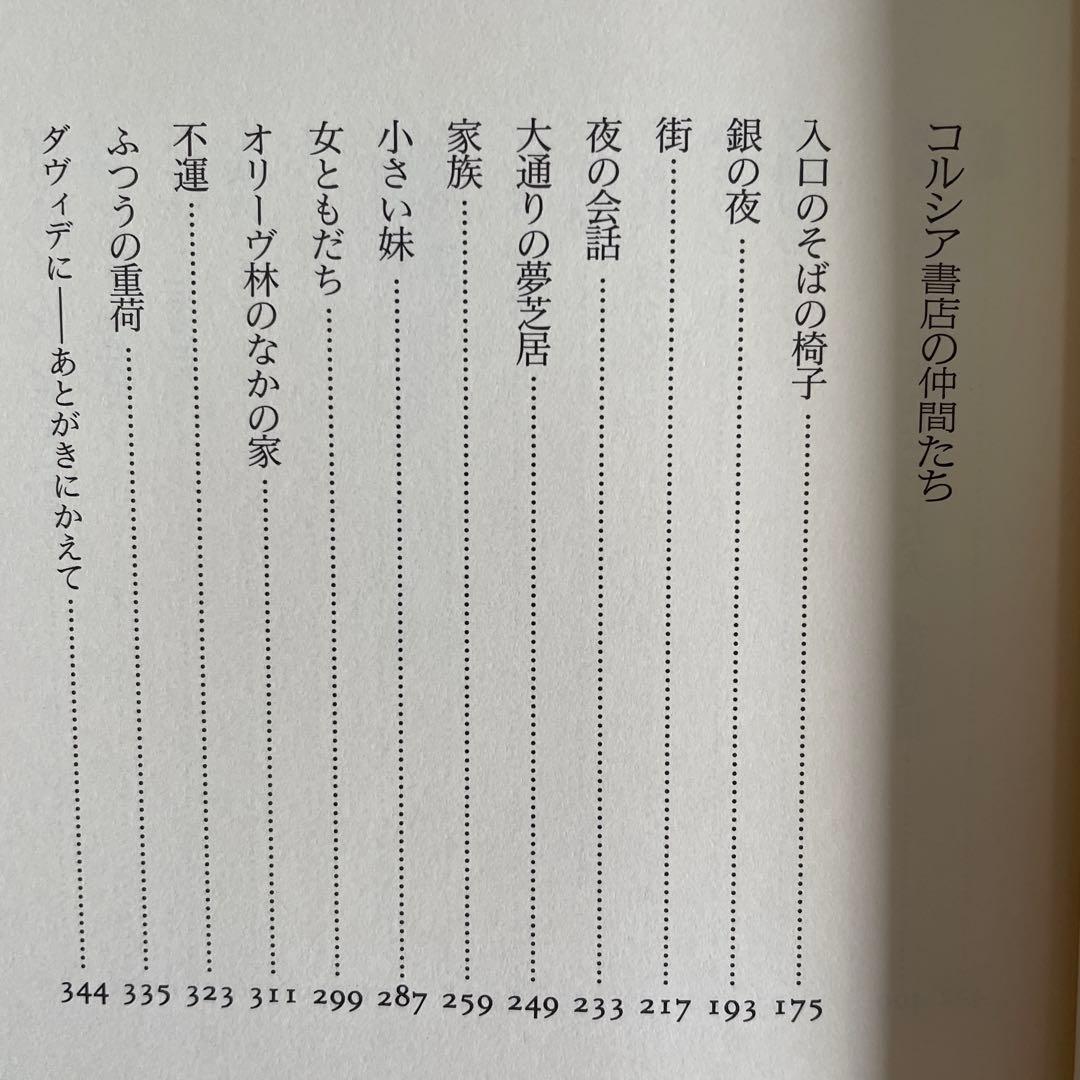 コルシア書店の仲間たち
入口のそばの椅子……175
銀の夜……193
街……217
夜の会話……233
大通りの夢芝居……249
家族……259
小さい妹……287
女ともだち……299
オリーヴ林のなかの家……311
不運……323
ふつうの重荷……335
ダヴィデに――あとがきにかえて……344